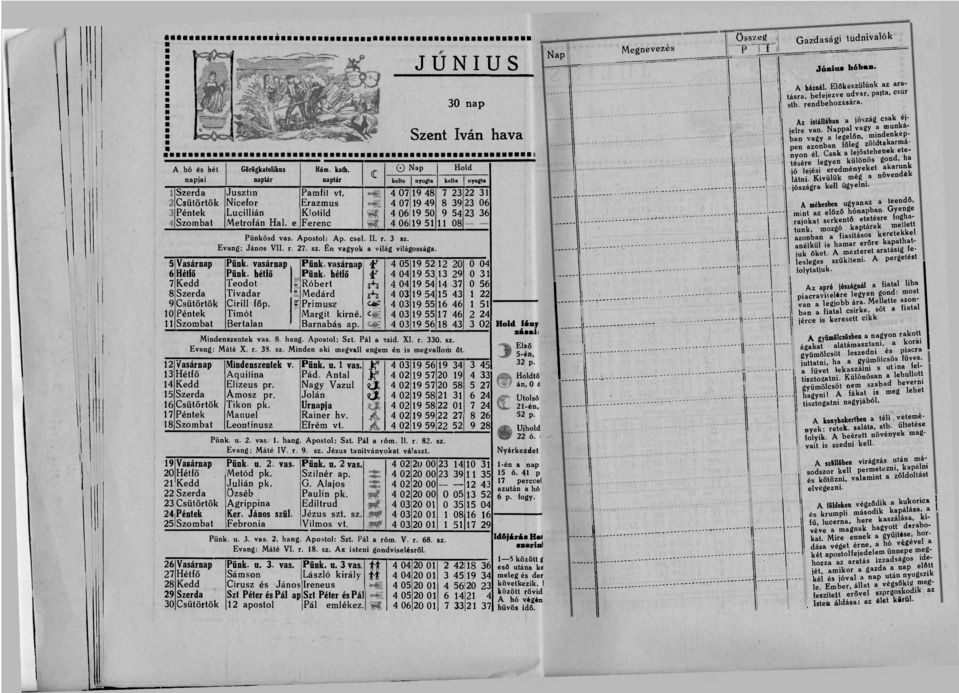 JÚNIUS
30 nap
Szent Iván hava
A hó és hét napjai | Görögkatolikus naptár | Róm. kath. naptár | ☾ | ☉ Nap | Hold
kelte | nyugta | kelte | nyugta
1 Szerda | Jusztin | Pamfil vt. | 4 07 | 19 48 | 7 23 | 22 31
2 Csütörtök | Nicefor | Erazmus | 4 07 | 19 49 | 8 39 | 23 06
3 Péntek | Lucillián | Klotild | 4 06 | 19 50 | 9 54 | 23 36
4 Szombat | Metrofán Hal. e | Ferenc | 4 06 | 19 51 | 11 08 | —
Pünkösd vas. Apostol: Ap. csel. II. r. 3 sz.
Evang: János VII. r. 27. sz. Én vagyok a világ világossága.
5 Vasárnap | Pünk. vasárnap | Pünk. vasárnap | 4 05 | 19 52 | 12 20 | 0 04
6 Hétfő | Pünk. hétfő | Pünk. hétfő | 4 04 | 19 53 | 13 29 | 0 31
7 Kedd | Teodot | Róbert | 4 04 | 19 54 | 14 37 | 0 56
8 Szerda | Tivadar | Medárd | 4 03 | 19 54 | 15 43 | 1 22
9 Csütörtök | Cirill főp. | Primusz | 4 03 | 19 55 | 16 46 | 1 51
10 Péntek | Timót | Margit kirné. | 4 03 | 19 55 | 17 46 | 2 24
11 Szombat | Bertalan | Barnabás ap. | 4 03 | 19 56 | 18 43 | 3 02
Mindenszentek vas. 8. hang. Apostol: Szt. Pál a zsid. XI. r. 330. sz.
Evang: Máté X. r. 38. sz. Minden aki megvall engem én is megvallom őt.
12 Vasárnap | Mindenszentek v. | Pünk. u. 1 vas. | 4 03 | 19 56 | 19 34 | 3 45
13 Hétfő | Aquilina | Pád. Antal | 4 02 | 19 57 | 20 19 | 4 33
14 Kedd | Elizeus pr. | Nagy Vazul | 4 02 | 19 57 | 20 58 | 5 27
15 Szerda | Amosz pr. | Jolán | 4 02 | 19 58 | 21 31 | 6 24
16 Csütörtök | Tikon pk. | Urnapja | 4 02 | 19 58 | 22 01 | 7 24
17 Péntek | Manuel | Rainer hv. | 4 02 | 19 59 | 22 27 | 8 26
18 Szombat | Leontinusz | Efrém vt. | 4 02 | 19 59 | 22 52 | 9 28
Pünk. u. 2. vas. 1. hang. Apostol: Szt. Pál a róm. II. r. 82. sz.
Evang: Máté IV. r. 9. sz. Jézus tanitványokat választ.
19 Vasárnap | Pünk. u. 2. vas. | Pünk. u. 2 vas. | 4 02 | 20 00 | 23 14 | 10 31
20 Hétfő | Metód pk. | Szilnér ap. | 4 02 | 20 00 | 23 39 | 11 35
21 Kedd | Julián pk. | G. Alajos | 4 02 | 20 00 | — | 12 43
22 Szerda | Özséb | Paulin pk. | 4 02 | 20 00 | 0 05 | 13 52
23 Csütörtök | Agrippina | Ediltrud | 4 03 | 20 01 | 0 35 | 15 04
24 Péntek | Ker. János szül. | Jézus szt. sz. | 4 03 | 20 01 | 1 08 | 16 16
25 Szombat | Febronia | Vilmos vt. | 4 03 | 20 01 | 1 51 | 17 29
Pünk. u. 3. vas. 2. hang. Apostol: Szt. Pál a róm. V. r. 68. sz.
Evang: Máté VI. r. 18. sz. Az isteni gondviselésről.
26 Vasárnap | Pünk. u. 3. vas. | Pünk. u. 3 vas. | 4 04 | 20 01 | 2 42 | 18 36
27 Hétfő | Sámson | László király | 4 04 | 20 01 | 3 45 | 19 34
28 Kedd | Cirusz és János | Ireneus | 4 05 | 20 01 | 4 56 | 20 23
29 Szerda | Szt Péter és Pál ap | Szt Péter és Pál | 4 05 | 20 01 | 6 14 | 21 4
30 Csütörtök | 12 apostol | Pál emlékez. | 4 06 | 20 01 | 7 33 | 21 37
Hold fény
Első
5-én,
32 p.
Holdtö
Utolsó
21-én,
52 p.
Ujhold
22 ó.
Nyárkezdet
1-én a nap
15 ó. 41 p
17 perccel
azután a hó
6 p. fogy.
Időjárás He
szerint
1—5 között
eső utána
meleg és der
következik.
között rövid
A hó végén
hüvös idő.
Nap | Megnevezés | Összeg
P | f
Gazdasági tudnivalók
Június hóban.
A háznál. Előkészülünk az ara-
tásra, befejezve udvar, pajta, csűr
stb. rendbehozására.
Az istállóban a jószág csak éj-
jelre van. Nappal vagy a munká-
ban vagy a legelőn, mindenkép-
pen azonban főleg zöldtakarmá-
nyon él. Csak a fejőstehenek ete-
tésére legyen különös gond, ha
jó fejési eredményeket akarunk
látni. Kivülük még a növendék
jószágra kell ügyelni.
A méhesben ugyanaz a teendő,
mint az előző hónapban. Gyenge
rajokat serkentő etetésre foghatunk,
mozgó kaptárak mellett
azonban a fiasításos keretekkel
anélkül is hamar erőre kapathat-
juk őket. A mézteret aratásig fe-
lesleges szűkiteni. A pergetést
folytatjuk.
Az apró jószágnál a fiatal liba
piacravitelére legyen gond: most
van a legjobb ára. Mellette azon-
ban a fiatal csirke, sőt a fiatal
jérce is keresett cikk.
A gyümölcsösben a nagyon rakott
ágakat alátámasztani, a korai
gyümölcsöt leszedni és piacra
juttatni, ha a gyümölcsös füves,
a füvet lekaszálni s utána fel-
tisztogatni. Különösen a lehullott
gyümölcsöt nem szabad heverni
hagyni! A fákat is meg lehet
tisztogatni nagyjából.
A konyhakertben a téli vetemé-
nyek: retek, saláta, stb. ültetése
folyik. A beérett növények mag-
vait is szedni kell.
A szőllőben virágzás után má-
sodszor kell permetezni, kapálni
és kötözni, valamint a oltásokat
elvégezni.
A földeken végződik a kukorica
és krumpli második kapálása, a
fű, lucerna, here kaszálása, ki-
véve a magnak hagyott darabo-
kat. Mire ennek a gyüjtése, hor-
dása véget érne, a hó végével a
két apostolfejedelem ünnepe meg-
hozza az aratás izzadságos ide-
jét, amikor a gazda a nap előtt
kél és jóval a nap után nyugszik
le. Ember, állat a végsőkig meg-
feszitett erővel szorgoskodik az
Isten áldása: az élet körül.